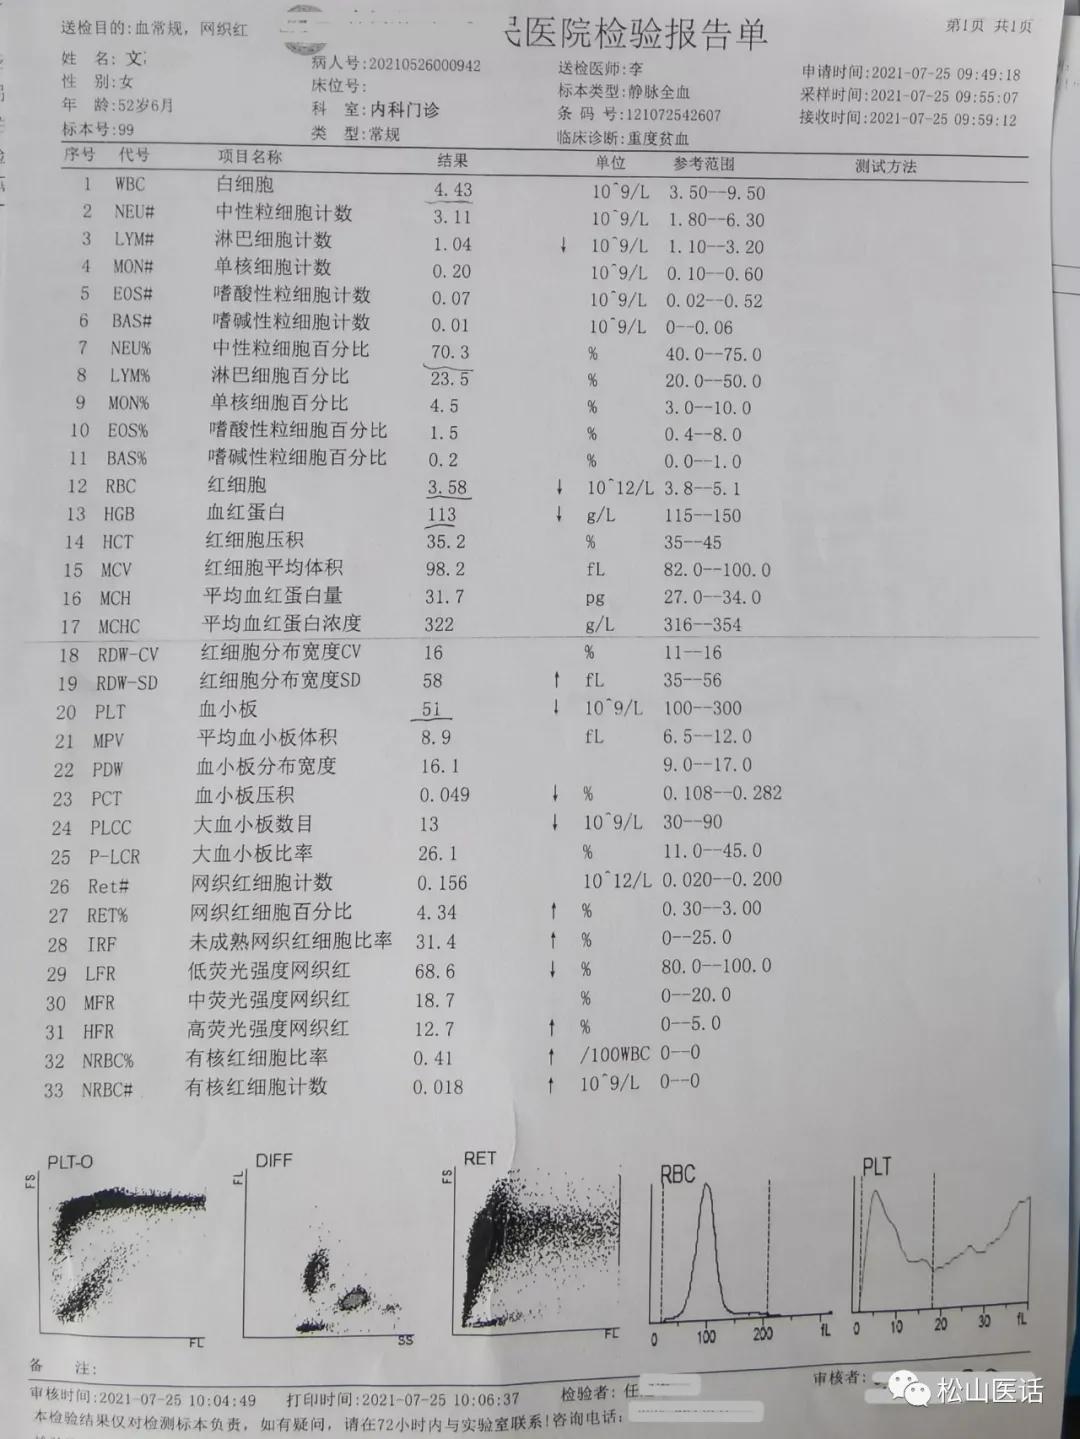 第1页 共1页
民医院检验报告单
送检目的:血常规，网织红
姓 名: 文 病人号:20210526000942 送检医师:李 申请时间:2021-07-25 09:49:18
性 别:女 床位号: 标本类型:静脉全血 采样时间:2021-07-25 09:55:07
年 龄:52岁6月 科 室:内科门诊 条 码 号:121072542607 接收时间:2021-07-25 09:59:12
标本号:99 类 型:常规 临床诊断:重度贫血
序号 代号 项目名称 结果 单位 参考范围 测试方法
1 WBC 白细胞 4.43 10^9/L 3.50--9.50
2 NEU# 中性粒细胞计数 3.11 10^9/L 1.80--6.30
3 LYM# 淋巴细胞计数 1.04 ↓ 10^9/L 1.10--3.20
4 MON# 单核细胞计数 0.20 10^9/L 0.10--0.60
5 EOS# 嗜酸性粒细胞计数 0.07 10^9/L 0.02--0.52
6 BAS# 嗜碱性粒细胞计数 0.01 10^9/L 0--0.06
7 NEU% 中性粒细胞百分比 70.3 % 40.0--75.0
8 LYM% 淋巴细胞百分比 23.5 % 20.0--50.0
9 MON% 单核细胞百分比 4.5 % 3.0--10.0
10 EOS% 嗜酸性粒细胞百分比 1.5 % 0.4--8.0
11 BAS% 嗜碱性粒细胞百分比 0.2 % 0.0--1.0
12 RBC 红细胞 3.58 ↓ 10^12/L 3.8--5.1
13 HGB 血红蛋白 113 ↓ g/L 115--150
14 HCT 红细胞压积 35.2 % 35--45
15 MCV 红细胞平均体积 98.2 fL 82.0--100.0
16 MCH 平均血红蛋白量 31.7 pg 27.0--34.0
17 MCHC 平均血红蛋白浓度 322 g/L 316--354
18 RDW-CV 红细胞分布宽度CV 16 % 11--16
19 RDW-SD 红细胞分布宽度SD 58 ↑ fL 35--56
20 PLT 血小板 51 ↓ 10^9/L 100--300
21 MPV 平均血小板体积 8.9 fL 6.5--12.0
22 PDW 血小板分布宽度 16.1 9.0--17.0
23 PCT 血小板压积 0.049 ↓ % 0.108--0.282
24 PLCC 大血小板数目 13 ↓ 10^9/L 30--90
25 P-LCR 大血小板比率 26.1 % 11.0--45.0
26 Ret# 网织红细胞计数 0.156 10^12/L 0.020--0.200
27 RET% 网织红细胞百分比 4.34 ↑ % 0.30--3.00
28 IRF 未成熟网织红细胞比率 31.4 ↑ % 0--25.0
29 LFR 低荧光强度网织红 68.6 ↓ % 80.0--100.0
30 MFR 中荧光强度网织红 18.7 % 0--20.0
31 HFR 高荧光强度网织红 12.7 ↑ % 0--5.0
32 NRBC% 有核红细胞比率 0.41 ↑ /100WBC 0--0
33 NRBC# 有核红细胞计数 0.018 ↑ 10^9/L 0--0
PLT-O DIFF RET RBC PLT
FS FL FS
FL SS FL 0 100 200 fL 0 10 20 30 fL
备 注:
审核时间:2021-07-25 10:04:49 打印时间:2021-07-25 10:06:37 检验者: 任 审核者:
本检验结果仅对检测标本负责，如有疑问，请在72小时内与实验室联系!咨询电话:
松山医话